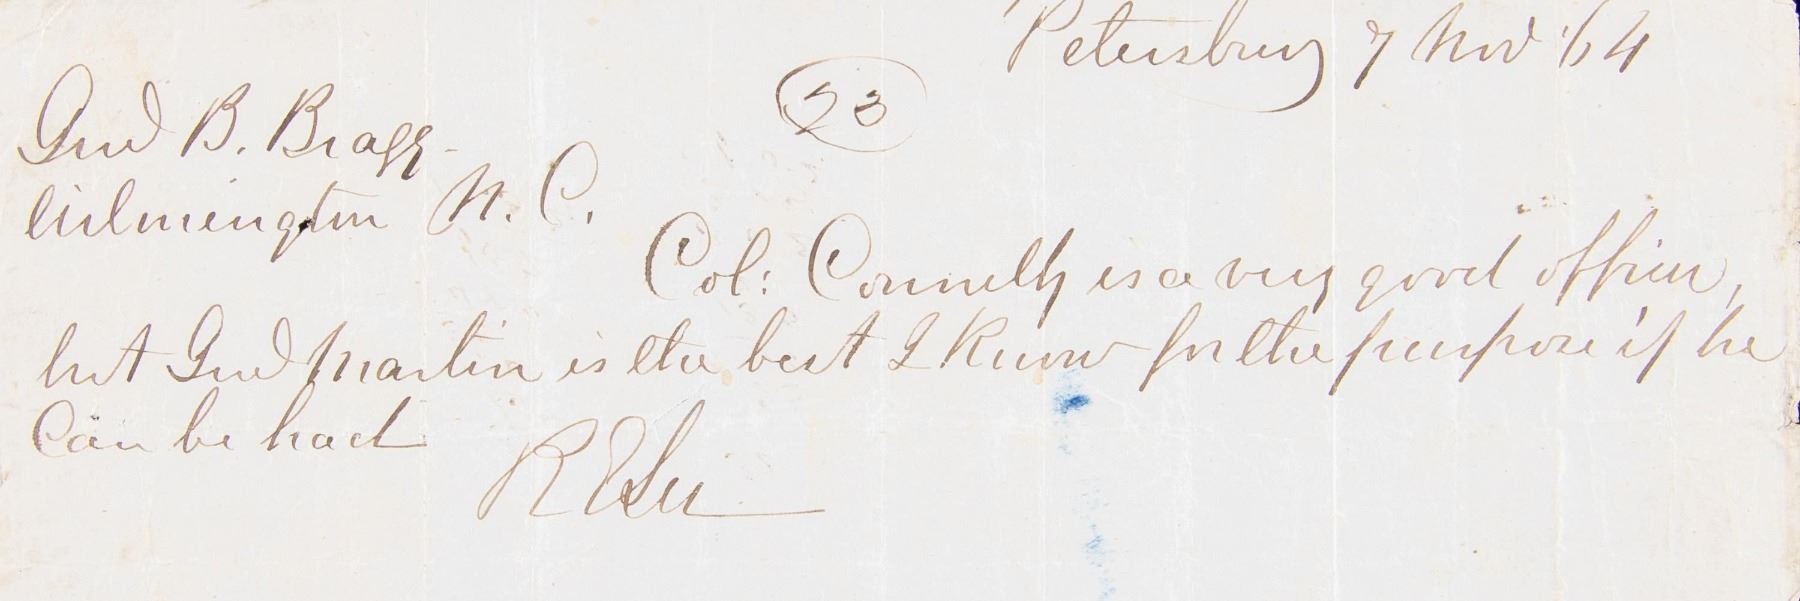 Petersburg 7 Nov '64
23
Genl B. Bragg
Wilmington N. C.
Col: Connelly is a very good officer,
but Genl Martin is the best I know for the purpose if he
can be had
R E Lee